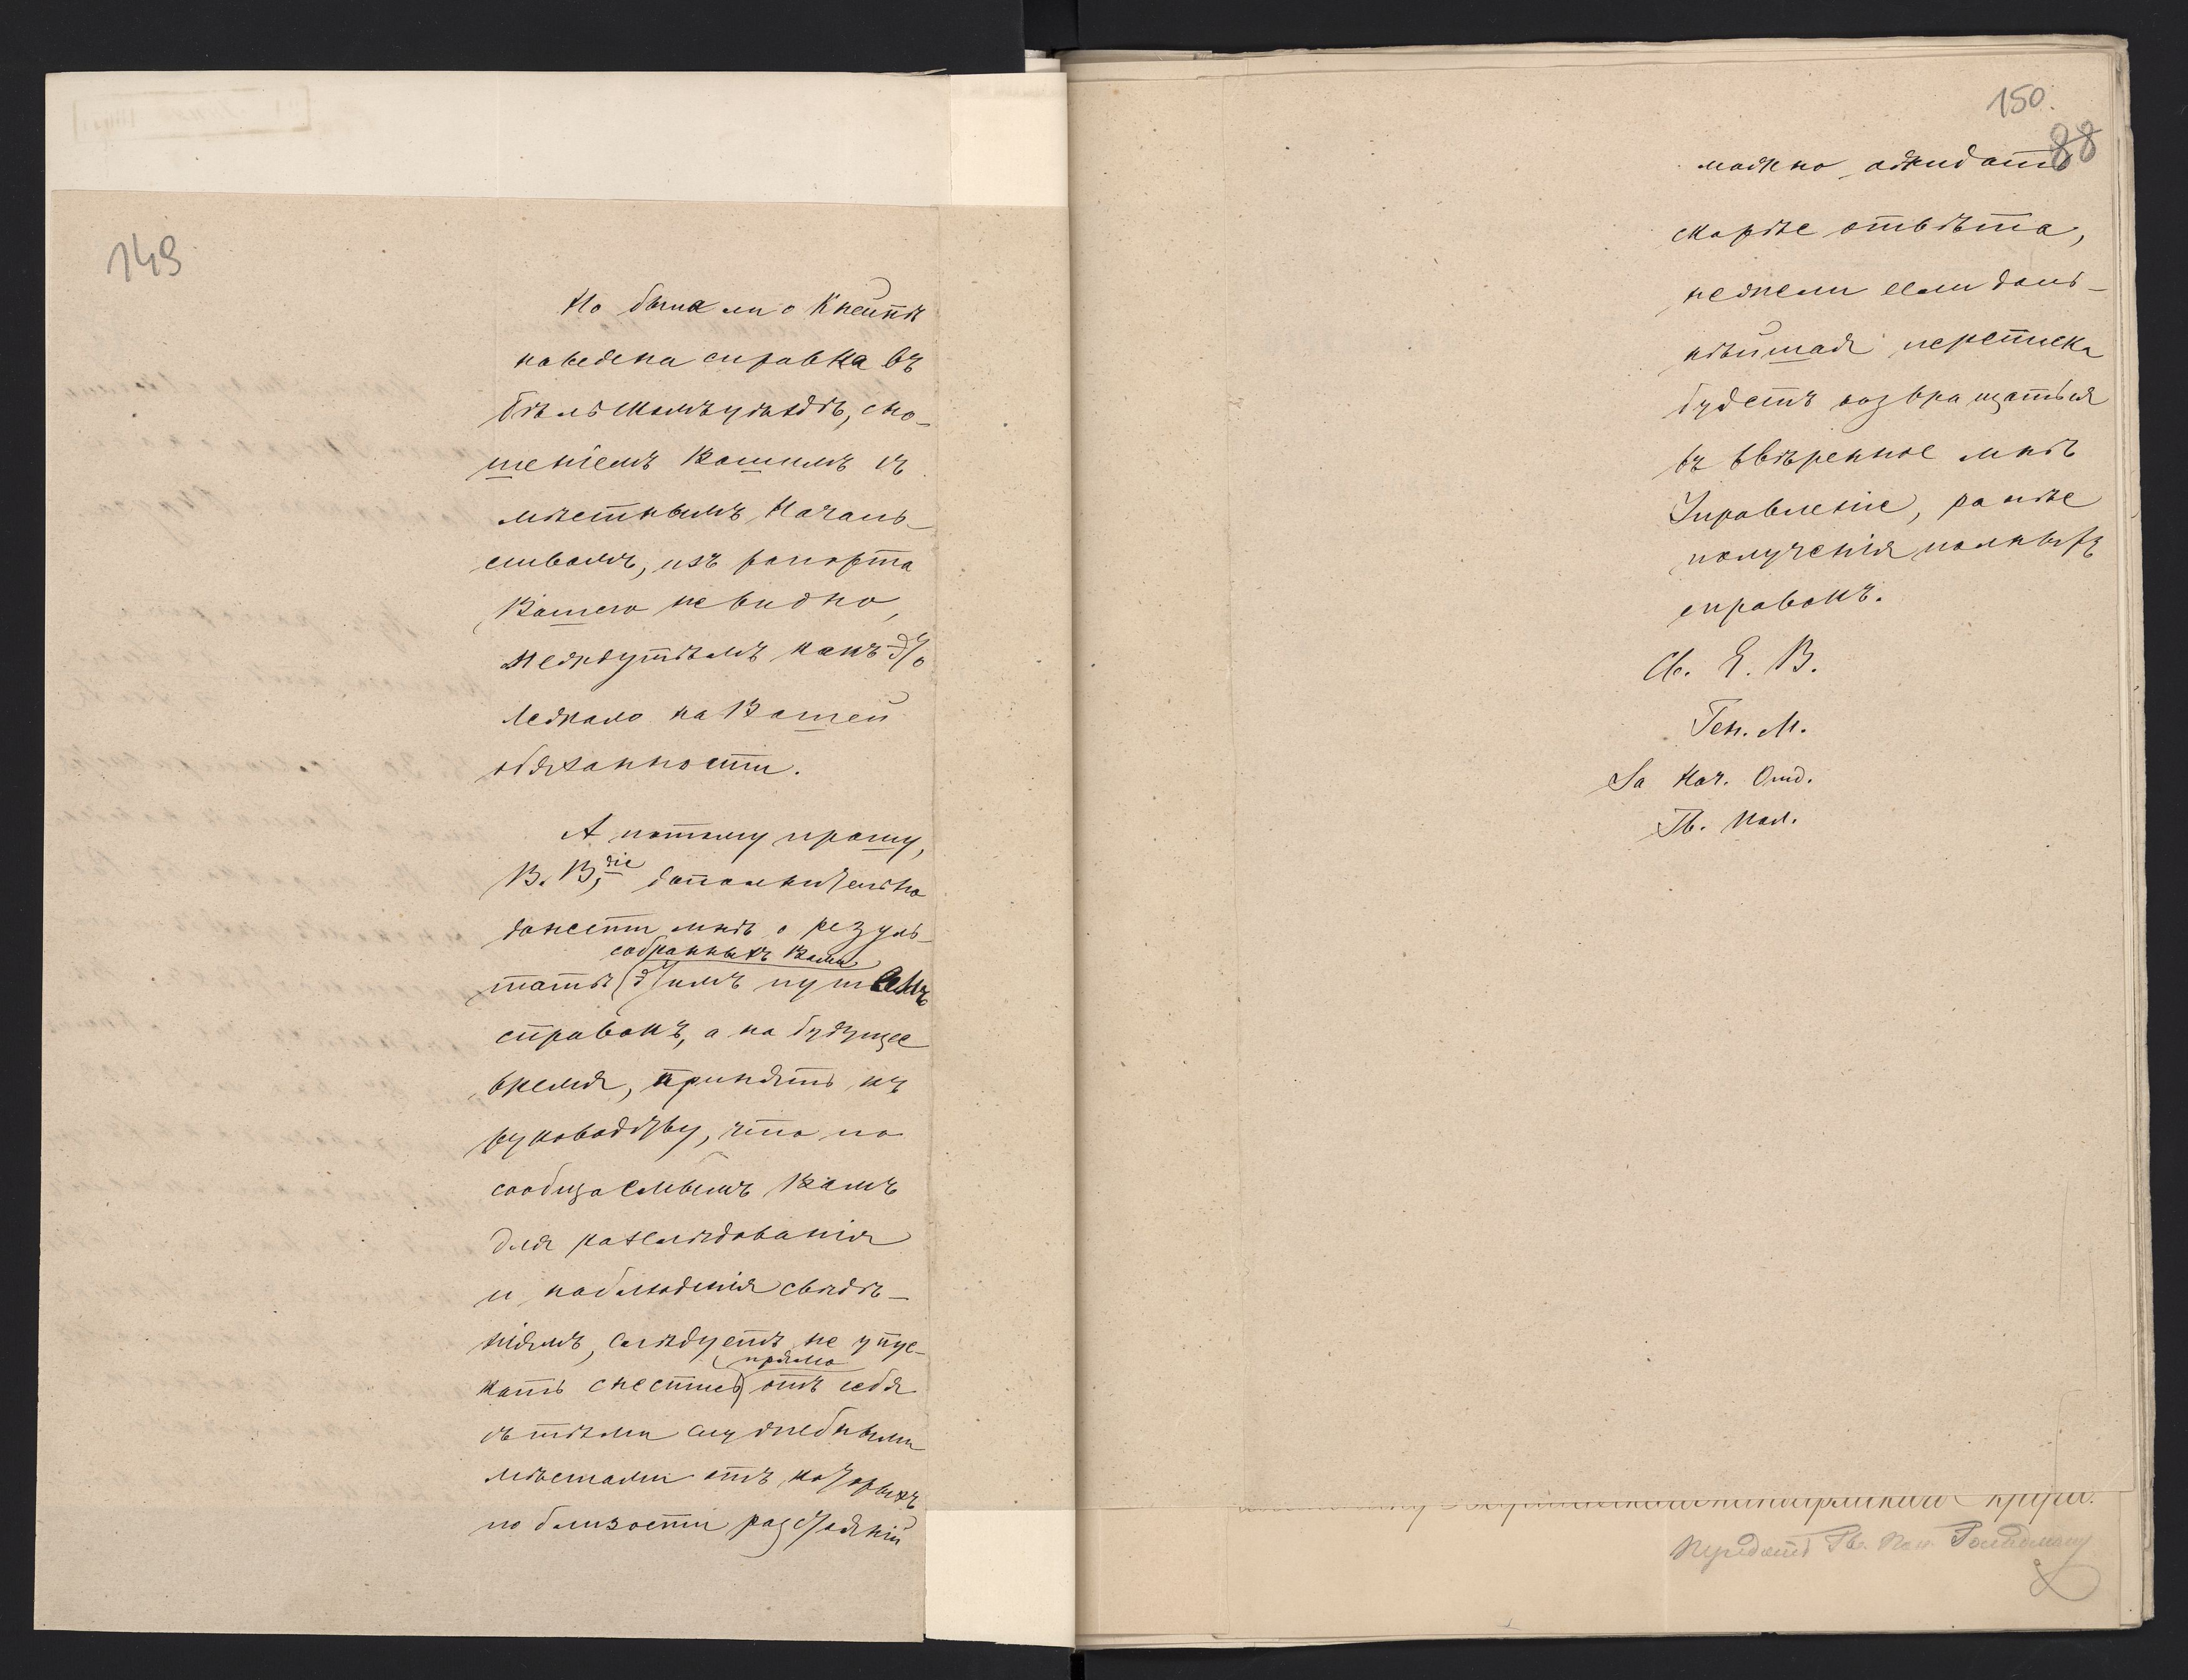 149
Но была ли о Кнейпѣ
наведена справка въ
Бѣльскомъ уѣздѣ, сно-
шеніемъ Вашимъ съ
мѣстнымъ Началь-
ствомъ, изъ рапорта
Вашего не видно,
междутѣмъ какъ это
лежало на Вашей
обязанности.
А потому прошу,
В. В.діе, дополнительно
донести мнѣ о резуль-
собранныхъ Вами
татѣ этимъ путемъ
справокъ, а на будущее
время, принять къ
руководству, что по
сообщаемымъ Вамъ
для разслѣдованія
и наблюденія свѣдѣ-
ніямъ, слѣдуетъ не упус-
прямо
кать снестись отъ себя
съ тѣми служебными
мѣстами отъ которыхъ
по близости разстояній
150.
88
можно ожидать
скорѣе отвѣта,
нежели если даль-
нѣйшая переписка
будетъ возвращаться
въ ввѣренное мнѣ
Управленіе, ранѣе
полученія полныхъ
справокъ.
Св. Е. В.
Ген. М.
За Нач. Отд.
Гв. Пол.
жандармскаго Округа.
Передать Гв. Пол.